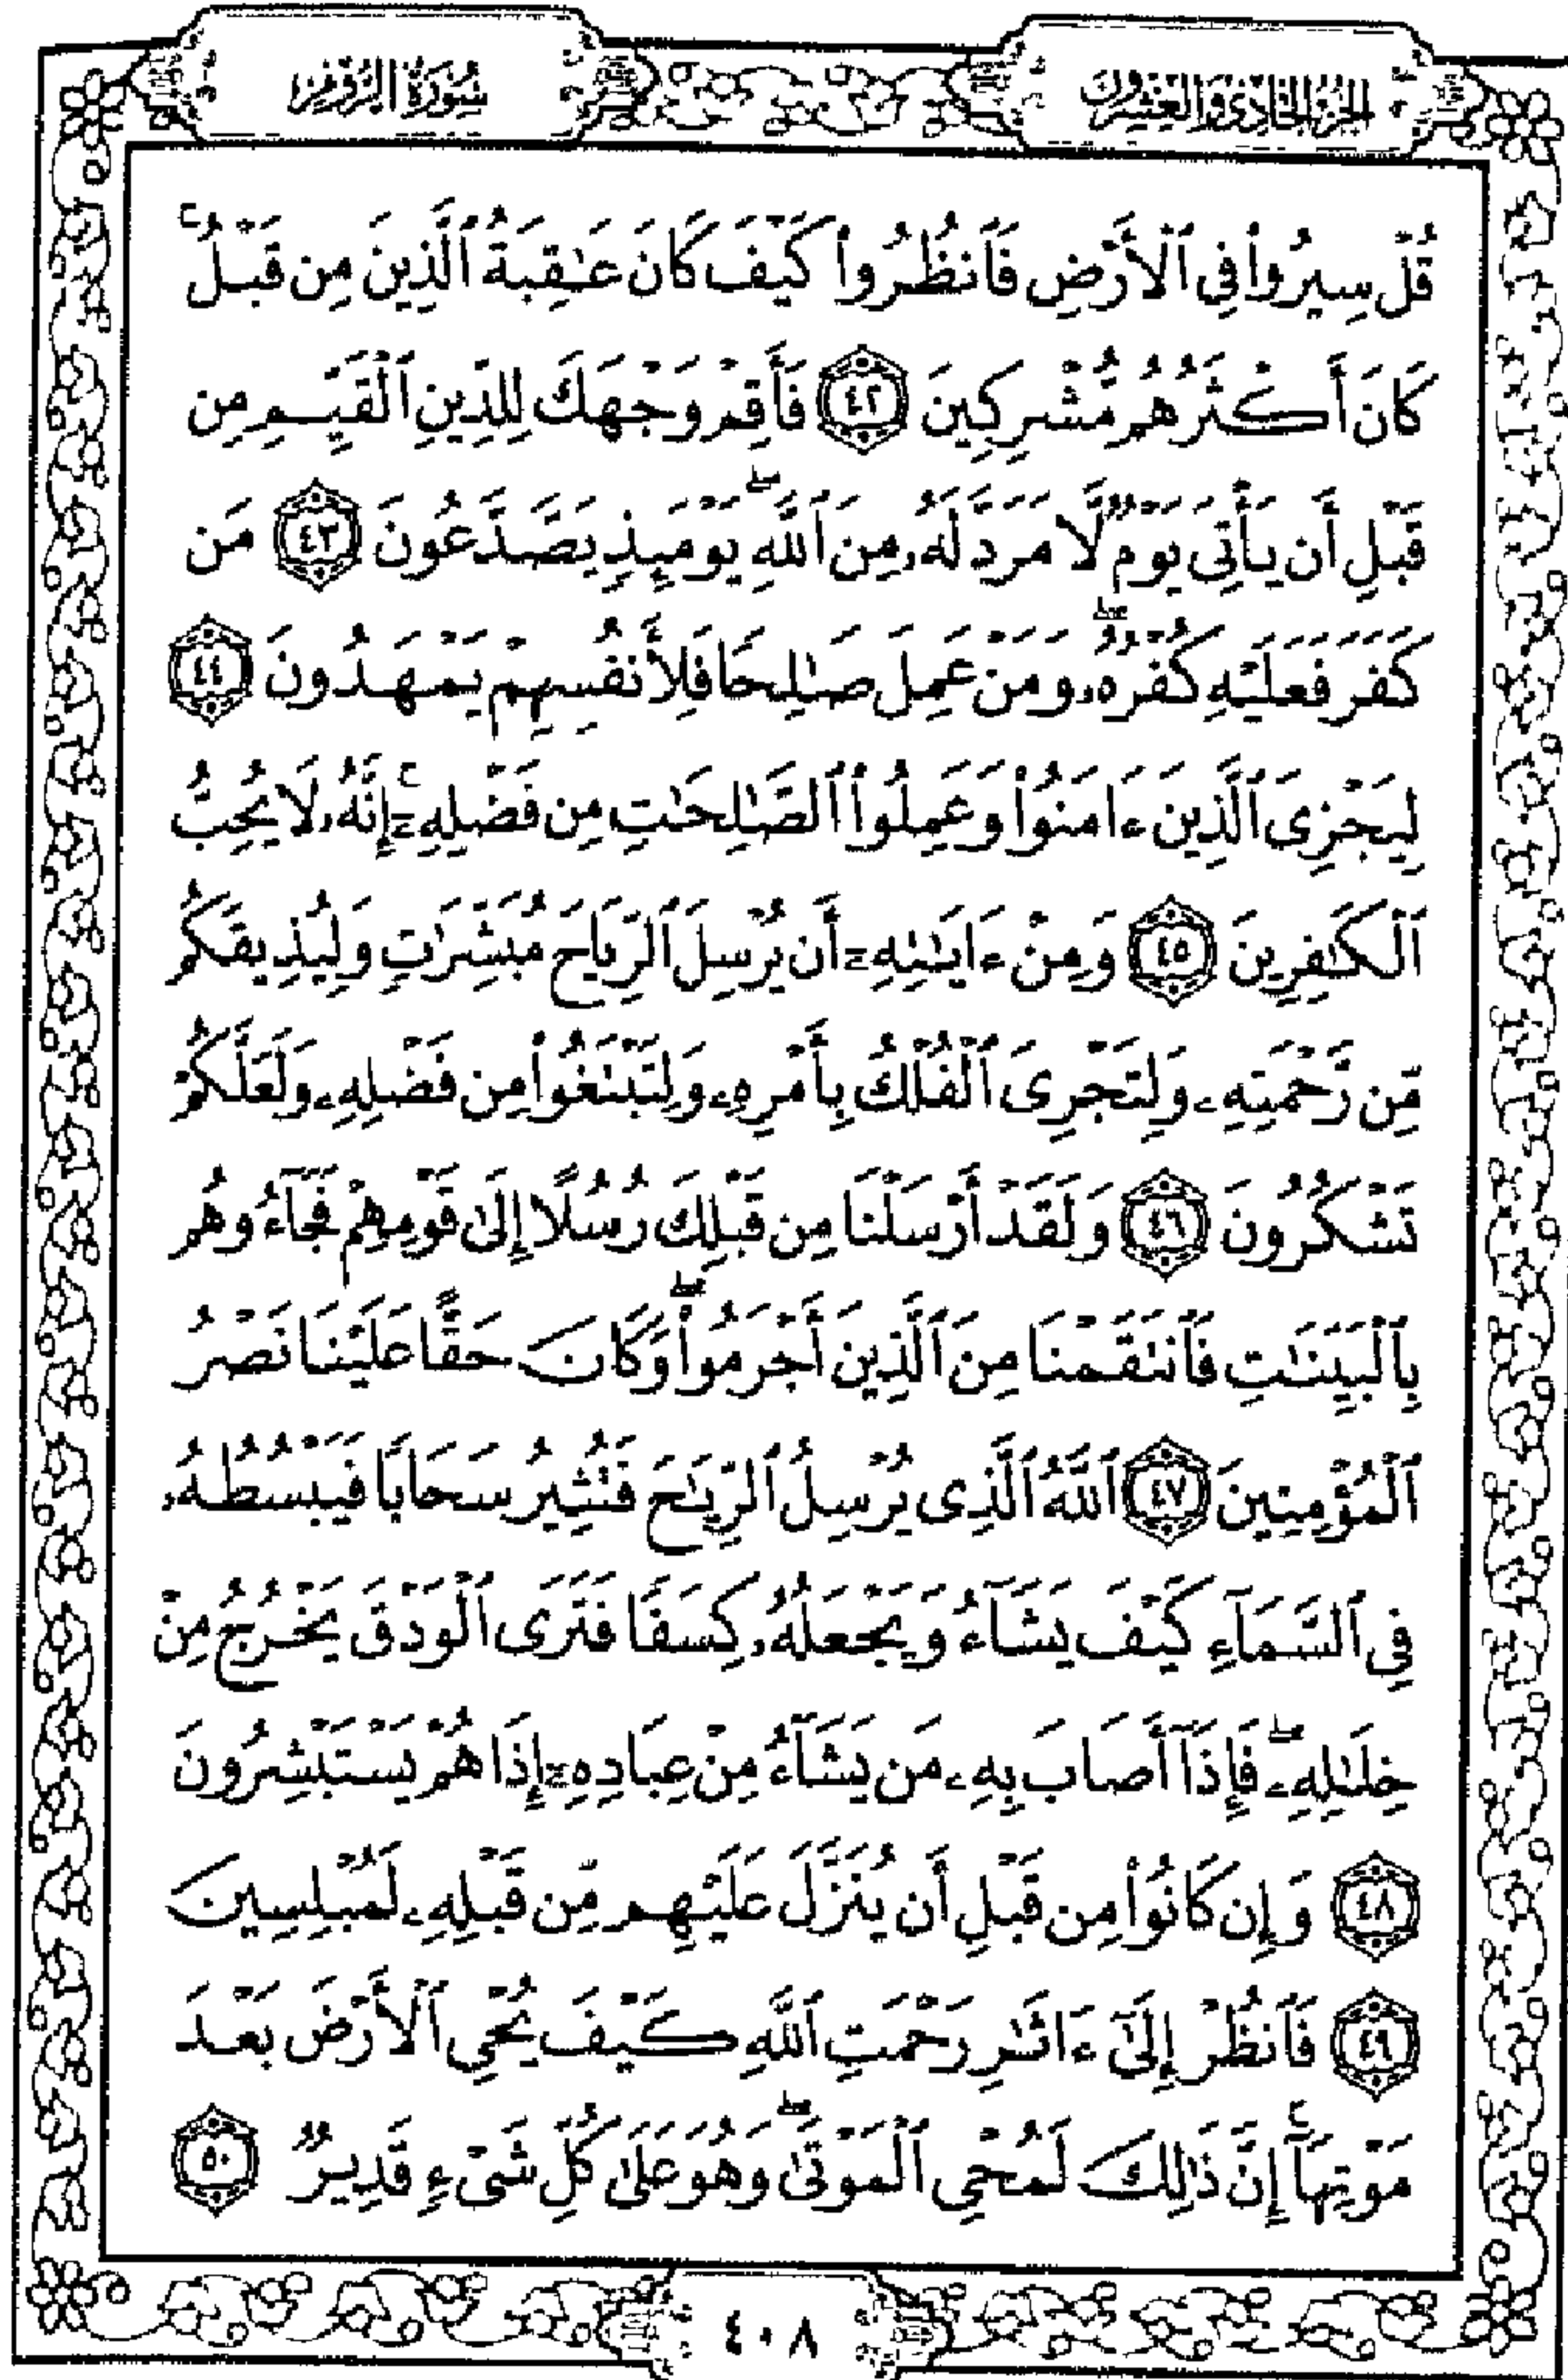 الجزء الحادي والعشرون
سورة الروم
قُلْ سِيرُوا۟ فِى ٱلْأَرْضِ فَٱنظُرُوا۟ كَيْفَ كَانَ عَـٰقِبَةُ ٱلَّذِينَ مِن قَبْلُ ۚ
كَانَ أَكْثَرُهُم مُّشْرِكِينَ ٤٢ فَأَقِمْ وَجْهَكَ لِلدِّينِ ٱلْقَيِّـمِ مِن
قَبْلِ أَن يَأْتِىَ يَوْمٌ لَّا مَرَدَّ لَهُۥ مِنَ ٱللَّهِ ۖ يَوْمَئِذٍ يَصَّدَّعُونَ ٤٣ مَن
كَفَرَ فَعَلَيْهِ كُفْرُهُۥ ۖ وَمَنْ عَمِلَ صَـٰلِحًا فَلِأَنفُسِهِمْ يَمْهَدُونَ ٤٤
لِيَجْزِىَ ٱلَّذِينَ ءَامَنُوا۟ وَعَمِلُوا۟ ٱلصَّـٰلِحَـٰتِ مِن فَضْلِهِۦٓ ۚ إِنَّهُۥ لَا يُحِبُّ
ٱلْكَـٰفِرِينَ ٤٥ وَمِنْ ءَايَـٰتِهِۦٓ أَن يُرْسِلَ ٱلرِّيَاحَ مُبَشِّرَٰتٍ وَلِيُذِيقَكُم
مِّن رَّحْمَتِهِۦ وَلِتَجْرِىَ ٱلْفُلْكُ بِأَمْرِهِۦ وَلِتَبْتَغُوا۟ مِن فَضْلِهِۦ وَلَعَلَّكُمْ
تَشْكُرُونَ ٤٦ وَلَقَدْ أَرْسَلْنَا مِن قَبْلِكَ رُسُلًا إِلَىٰ قَوْمِهِمْ فَجَآءُوهُم
بِٱلْبَيِّنَـٰتِ فَٱنتَقَمْنَا مِنَ ٱلَّذِينَ أَجْرَمُوا۟ ۖ وَكَانَ حَقًّا عَلَيْنَا نَصْرُ
ٱلْمُؤْمِنِينَ ٤٧ ٱللَّهُ ٱلَّذِى يُرْسِلُ ٱلرِّيَـٰحَ فَتُثِيرُ سَحَابًا فَيَبْسُطُهُۥ
فِى ٱلسَّمَآءِ كَيْفَ يَشَآءُ وَيَجْعَلُهُۥ كِسَفًا فَتَرَى ٱلْوَدْقَ يَخْرُجُ مِنْ
خِلَـٰلِهِۦ ۖ فَإِذَآ أَصَابَ بِهِۦ مَن يَشَآءُ مِنْ عِبَادِهِۦٓ إِذَا هُمْ يَسْتَبْشِرُونَ
٤٨ وَإِن كَانُوا۟ مِن قَبْلِ أَن يُنَزَّلَ عَلَيْهِم مِّن قَبْلِهِۦ لَمُبْلِسِينَ
٤٩ فَٱنظُرْ إِلَىٰٓ ءَاثَـٰرِ رَحْمَتِ ٱللَّهِ كَيْفَ يُحْىِ ٱلْأَرْضَ بَعْدَ
مَوْتِهَآ ۚ إِنَّ ذَٰلِكَ لَمُحْىِ ٱلْمَوْتَىٰ ۖ وَهُوَ عَلَىٰ كُلِّ شَىْءٍ قَدِيرٌ ٥٠
٤٠٨